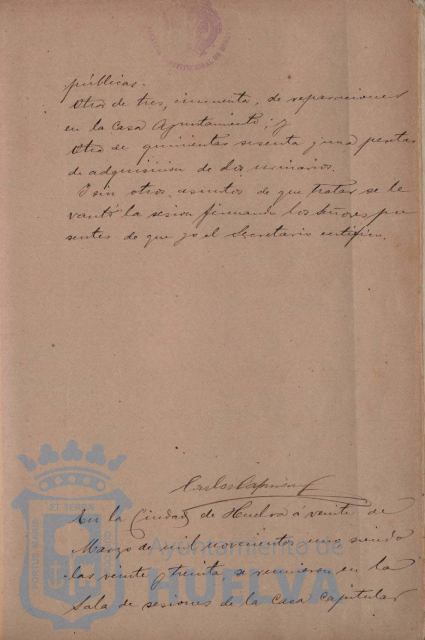 públicas.
Otro de tres, cincuenta, de reparaciones
en la Casa Ayuntamiento; y
Otro de quinientas sesenta y una pesetas
de adquisicion de dos urinarios.
Y sin otros asuntos de que tratar se le
vantó la sesion firmando los Señores pre
sentes de que yo el Secretario certifico.
Carlos
En la Ciudad de Huelva á veinte de
Marzo de mil novecientos uno siendo
las veinte y treinta se reunieron en la
Sala de sesiones de la casa capitular
Ayuntamiento de
HUELVA